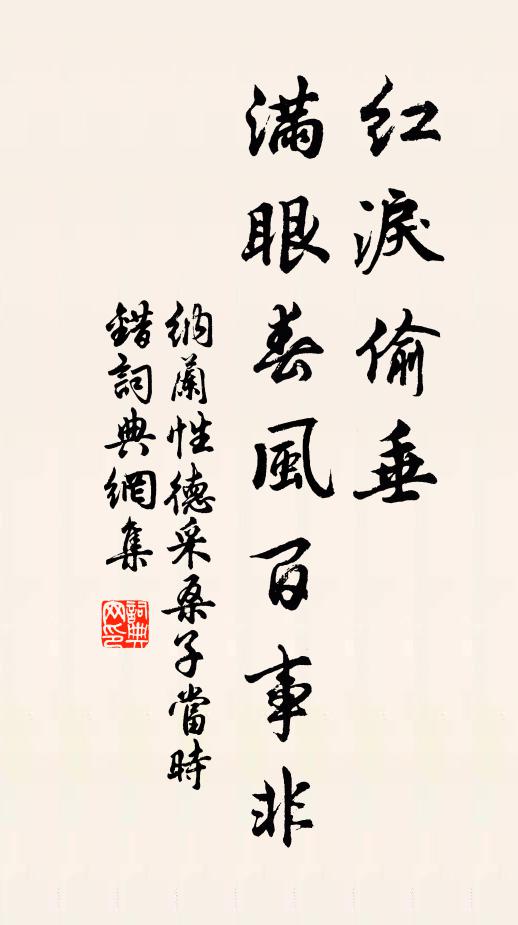 紅淚偷垂
滿眼春風百事非
納蘭性德采桑子當時
錯詞典網集
詞典
网印